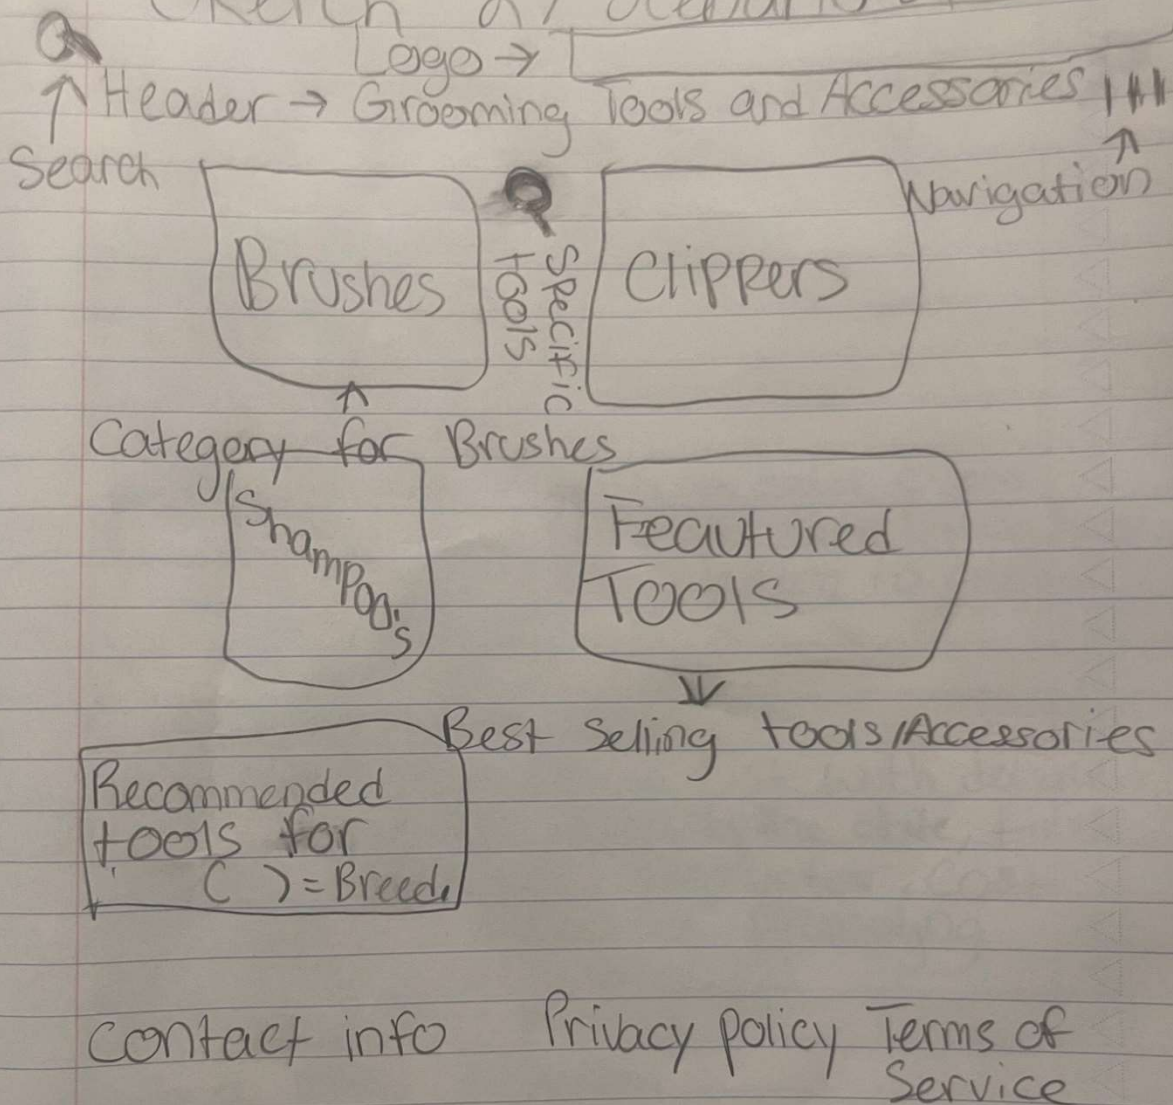 Logo →
Header → Grooming Tools and Accessories
Search
Navigation
Brushes
Specific
tools
Clippers
Category for Brushes
Shampoo's
Feautured
Tools
Best Selling tools/Accessories
Recommended
tools for
( ) = Breed.
Contact info
Privacy policy
Terms of
Service